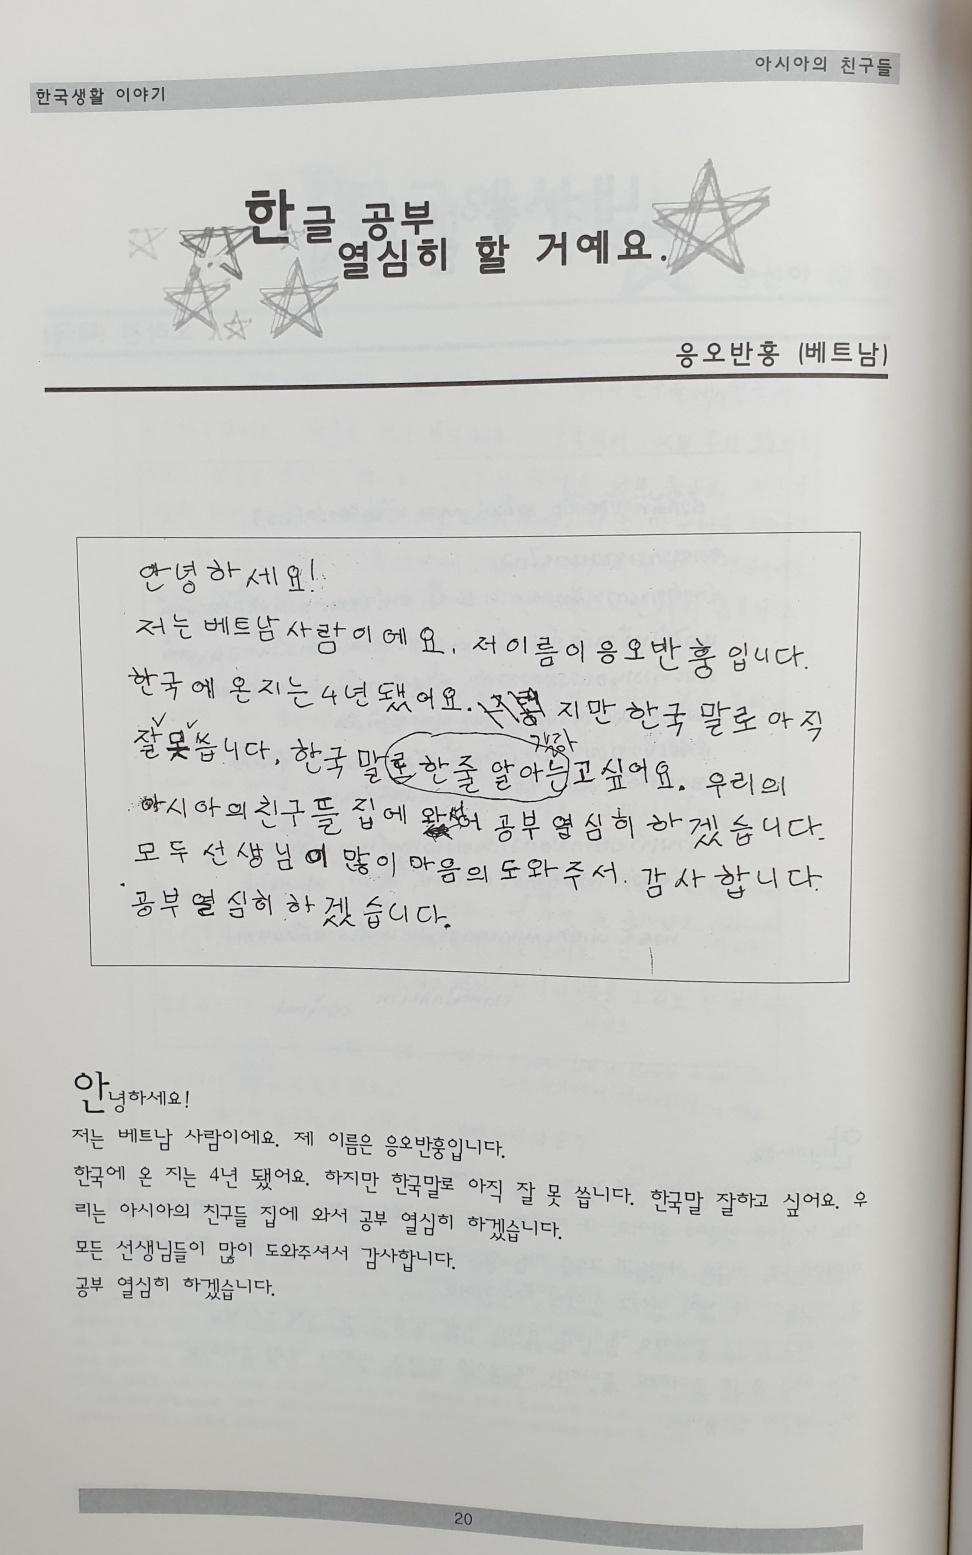 아시아의 친구들
한국생활 이야기
한글 공부
열심히 할 거예요.
응오반흥 (베트남)
안녕하세요!
저는 베트남 사람이에요. 저 이름이 응오반 훙 입니다.
한국에 온지는 4년 됐어요. 지만 한국 말로 아직
잘 못 씁니다. 한국 말로 한 줄 알아는고 싶어요. 우리의
아시아의 친구뜰 집에 공부 열심히 하겠습니다.
모두 선생님이 많이 마음의 도와주서. 감사합니다.
공부 열심히 하겠습니다.
안녕하세요!
저는 베트남 사람이에요. 제 이름은 응오반훙입니다.
한국에 온 지는 4년 됐어요. 하지만 한국말로 아직 잘 못 씁니다. 한국말 잘하고 싶어요. 우
리는 아시아의 친구들 집에 와서 공부 열심히 하겠습니다.
모든 선생님들이 많이 도와주셔서 감사합니다.
공부 열심히 하겠습니다.
20